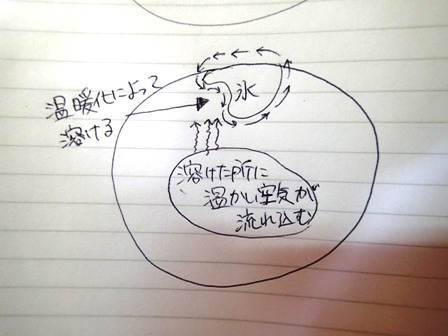 氷
温暖化によって
溶ける
溶けた所に
温かい空気が
流れ込む